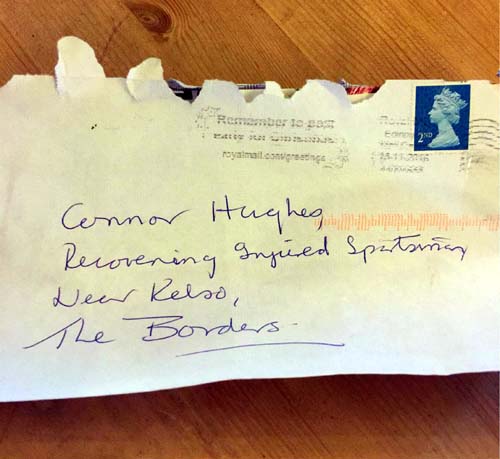 Remember to post
royalmail.com/greetings
2ND
Connor Hughes,
Recovering Injured Sportsman
Near Kelso,
The Borders